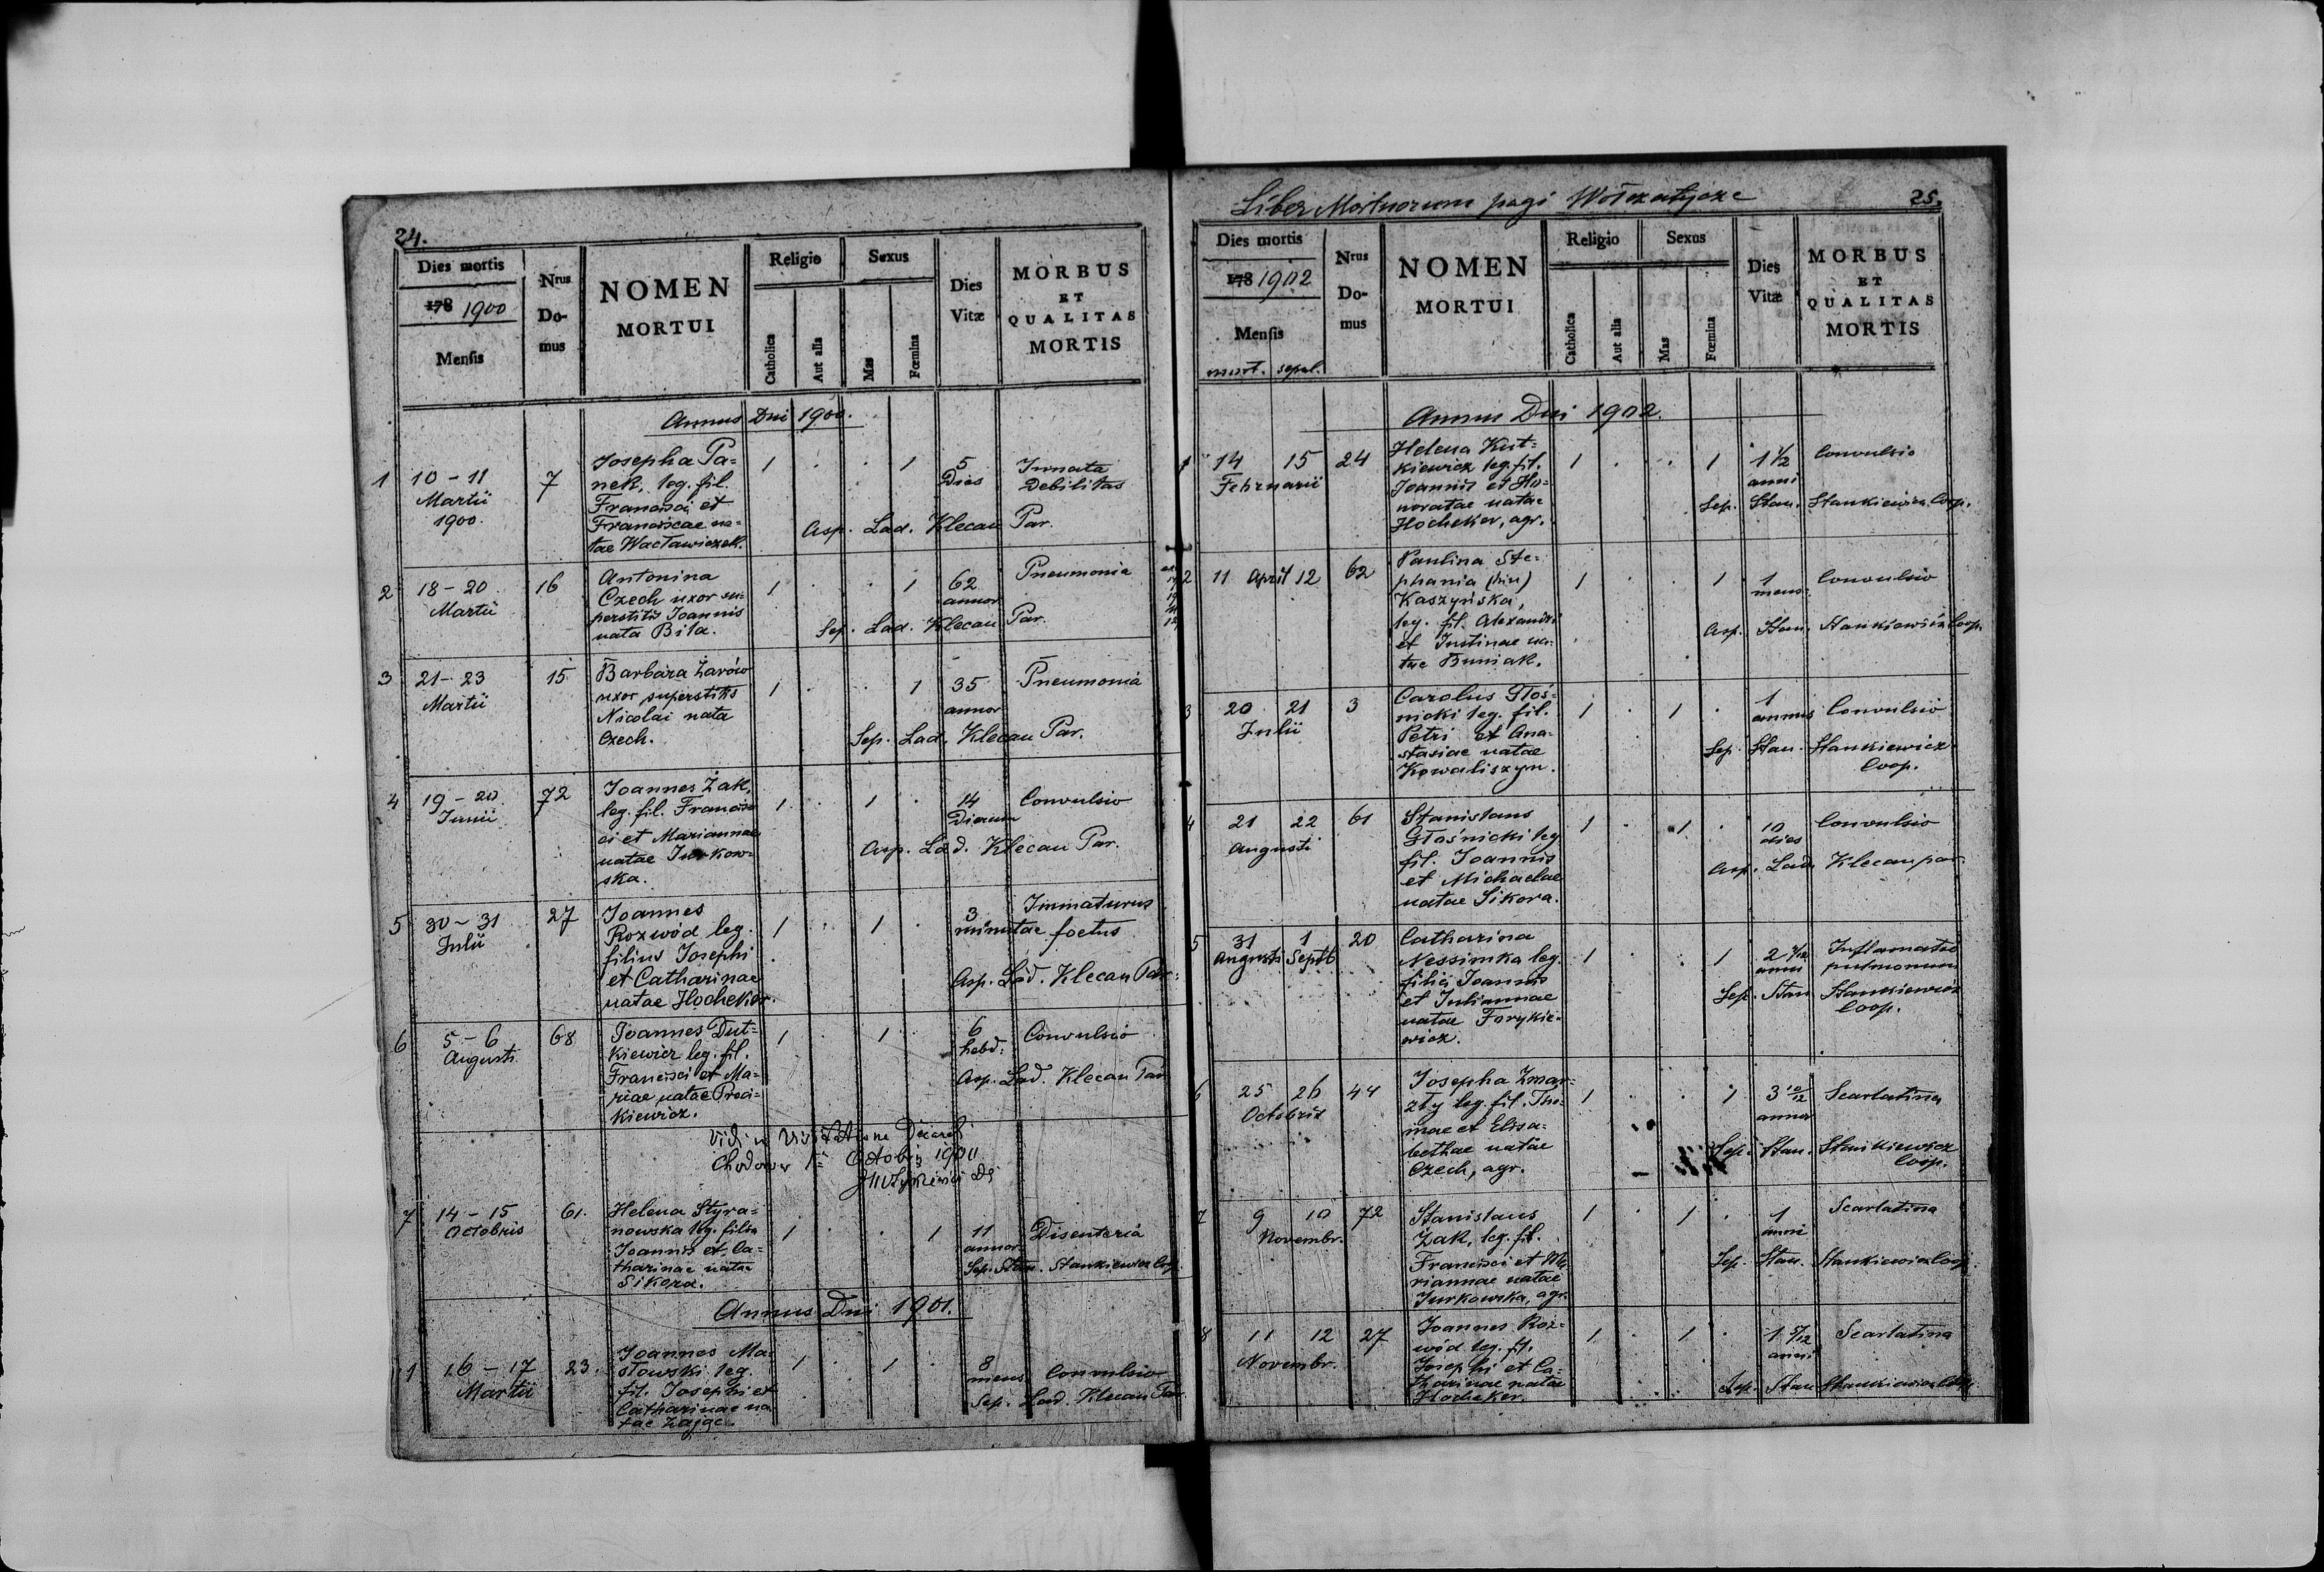 24.
Dies mortis
178 1900
Mensis
Nrus
Do-
mus
NOMEN
MORTUI
Religio
Catholica
Aut alia
Sexus
Mas
Fœmina
Dies
Vitæ
MORBUS
ET
QUALITAS
MORTIS
Annus Dni 1900.
1 10 - 11 7 Josepha Pa= 1 . . 1 5 Innata
Martii nek, leg. fil. Dies Debilitas
1900. Francisci et
Franciscae na= Asp. Lad. Klecan Par.
tae Wacławiczek.
2 18 - 20 16 Antonina 1 . . 1 62 Pneumonia
Martii Czech uxor su= annor
perstitis Joannis Sep. Lad. Klecan Par.
nata Bila.
3 21 - 23 15 Barbara Żarów 1 . . 1 35 Pneumonia
Martii uxor superstitis annor
Nicolai nata
Czech. Sep. Lad. Klecan Par.
4 19 - 20 72 Joannes Żak, 1 . 1 . 14 Convulsio
Junii leg. fil. Francis= Dierum
ci et Mariannae Asp. Lad. Klecan Par.
natae Jurkow=
ska.
5 30 - 31 27 Joannes 1 . 1 3 Immaturus
Julii Rozwód leg. minutae foetus
filius Josephi
et Catharinae Asp. Lad. Klecan Par.
natae Hocheker.
6 5 - 6 68 Joannes Dut= 1 . 1 . 6 Convulsio
Augusti kiewicz leg. fil. hebd:
Francisci et Ma= Asp. Lad. Klecan Par
riae natae Proci=
kiewicz.
Vidi in visitatione Decanali
Octobris
7 14 - 15 61. Helena Styra= 1 . . 1 11 Disenteria
Octobris nowska leg. filia annor
Joannis et Ca= Sep. Stan. Stankiewicz Coop.
tharinae natae
Sikora.
Annus Dni 1901.
1 16 - 17 23. Joannes Ma= 1 . 1 . 8 Convulsio
Martii słowski leg. mens
fil. Josephi et Sep. Lad. Klecan Par.
Catharinae na
tae Zając.
Liber Mortuorum pagi
25.
Dies mortis
178 1902
Mensis
mort. sepul.
Nrus
Do-
mus
NOMEN
MORTUI
Religio
Catholica
Aut alia
Sexus
Mas
Fœmina
Dies
Vitæ
MORBUS
ET
QUALITAS
MORTIS
Annus Dni 1902.
1 14 15 24 Helena Kut= 1 . . 1 1 1/2 Convulsio
Februarii kiewicz leg. fil. anni
Joannis et Ho= Sep. Stan. Stankiewicz Coop.
noratae natae
Hocheker, agr.
2 11 April 12 62 Paulina Ste= 1 . . 1 1 Convulsio
phania (bin) mens.
Kaszyńska,
leg. fil. Alexandri Asp. Stan. Stankiewicz Coop.
et Justinae na=
tae Buniak.
3 20 21 3 Carolus Głoś= 1 . 1 . 1 Convulsio
Julii nicki leg. fil. annus
Petri et Ana= Sep. Stan. Stankiewicz
stasiae natae Coop.
Kowaliszyn.
4 21 22 61 Stanislaus 1 . 1 . 10 Convulsio
Augusti Głośnicki leg. dies
fil. Joannis Asp. Lad. Klecan par.
et Michaelae
natae Sikora.
5 31 1 20 Catharina 1 . . 1 2 Inflamatio
Augusti Septb Nessimka leg. anni pulmonum
filia Joannis Sep. Stan Stankiewicz
et Juliannae Coop.
natae Forykie=
wicz.
6 25 26 44 Josepha Zmar= 1 . . 1 3 10/12 Scarlatina
Octobris zły leg. fil. Tho= annor
mae et Elisa= Sep. Stan. Stankiewicz
bethae natae Coop.
Czech, agr.
7 9 10 72 Stanislaus 1 . 1 . 1 Scarlatina
Novembr. Żak, leg. fil. anni
Francisci et Ma Sep. Stan. Stankiewicz Coop.
riannae natae
Jurkowska, agr.
8 11 12 27 Joannes Roz= 1 . 1 . 1 5/12 Scarlatina
Novembr. wód leg. fil. anni
Josephi et Ca= Sep. Stan Stankiewicz Coop.
tharinae natae
Hocheker.